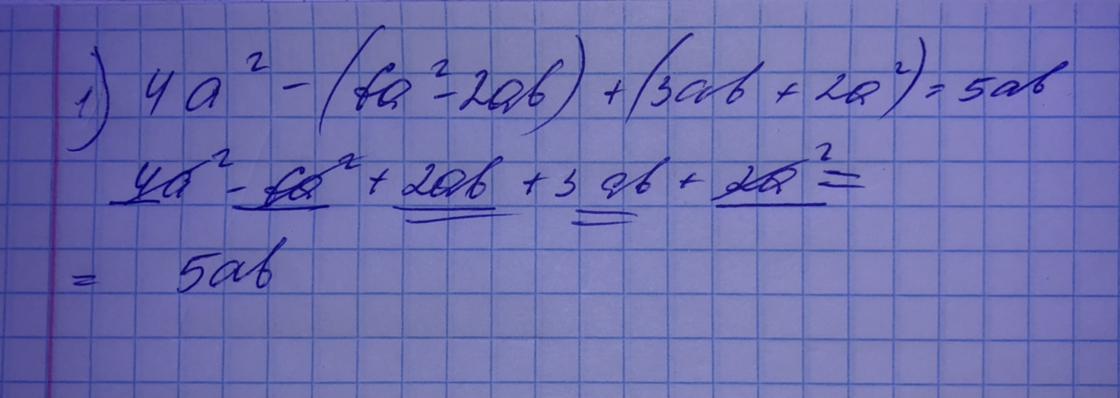 1) 4a² - (6a² - 2ab) + (3ab + 2a²) = 5ab
4a² - 6a² + 2ab + 3ab + 2a² =
= 5ab